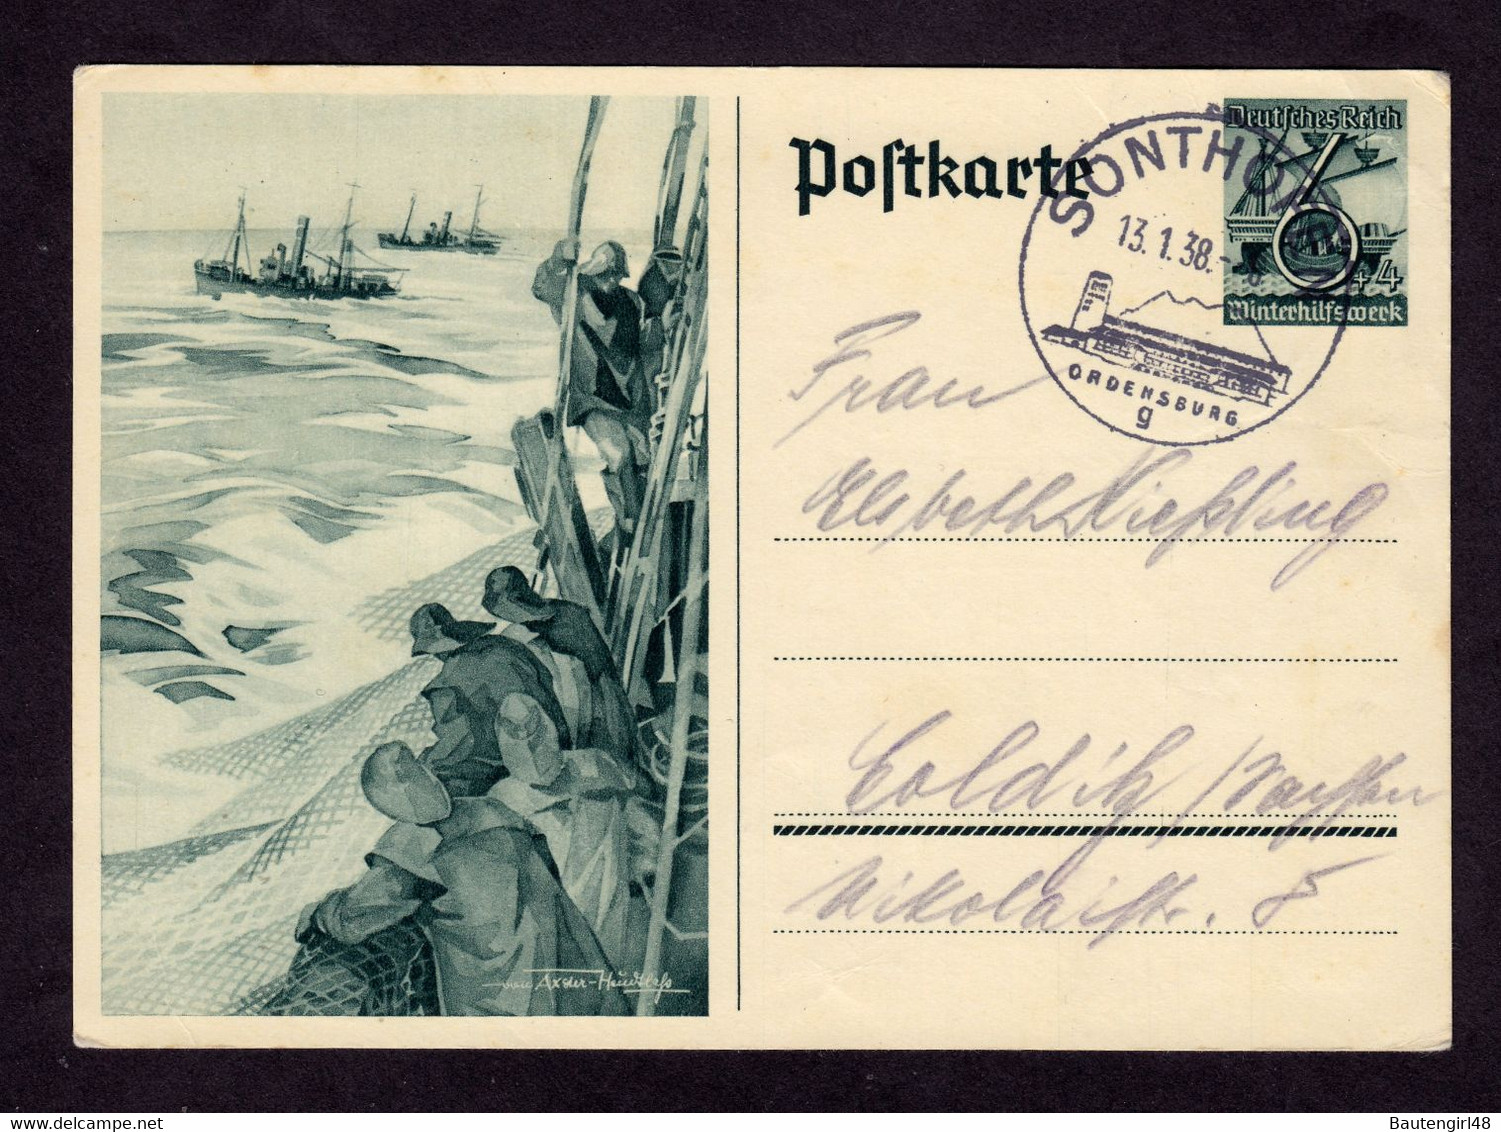 von Axster-Heudtlaß
Postkarte
Deutsches Reich
6
+4
Winterhilfswerk
SONTHOFEN
13.1.38.-
ORDENSBURG
g
Frau
Elsbeth Nießling
Colditz / Sachsen
Nikolaistr. 5
Bautengirl48